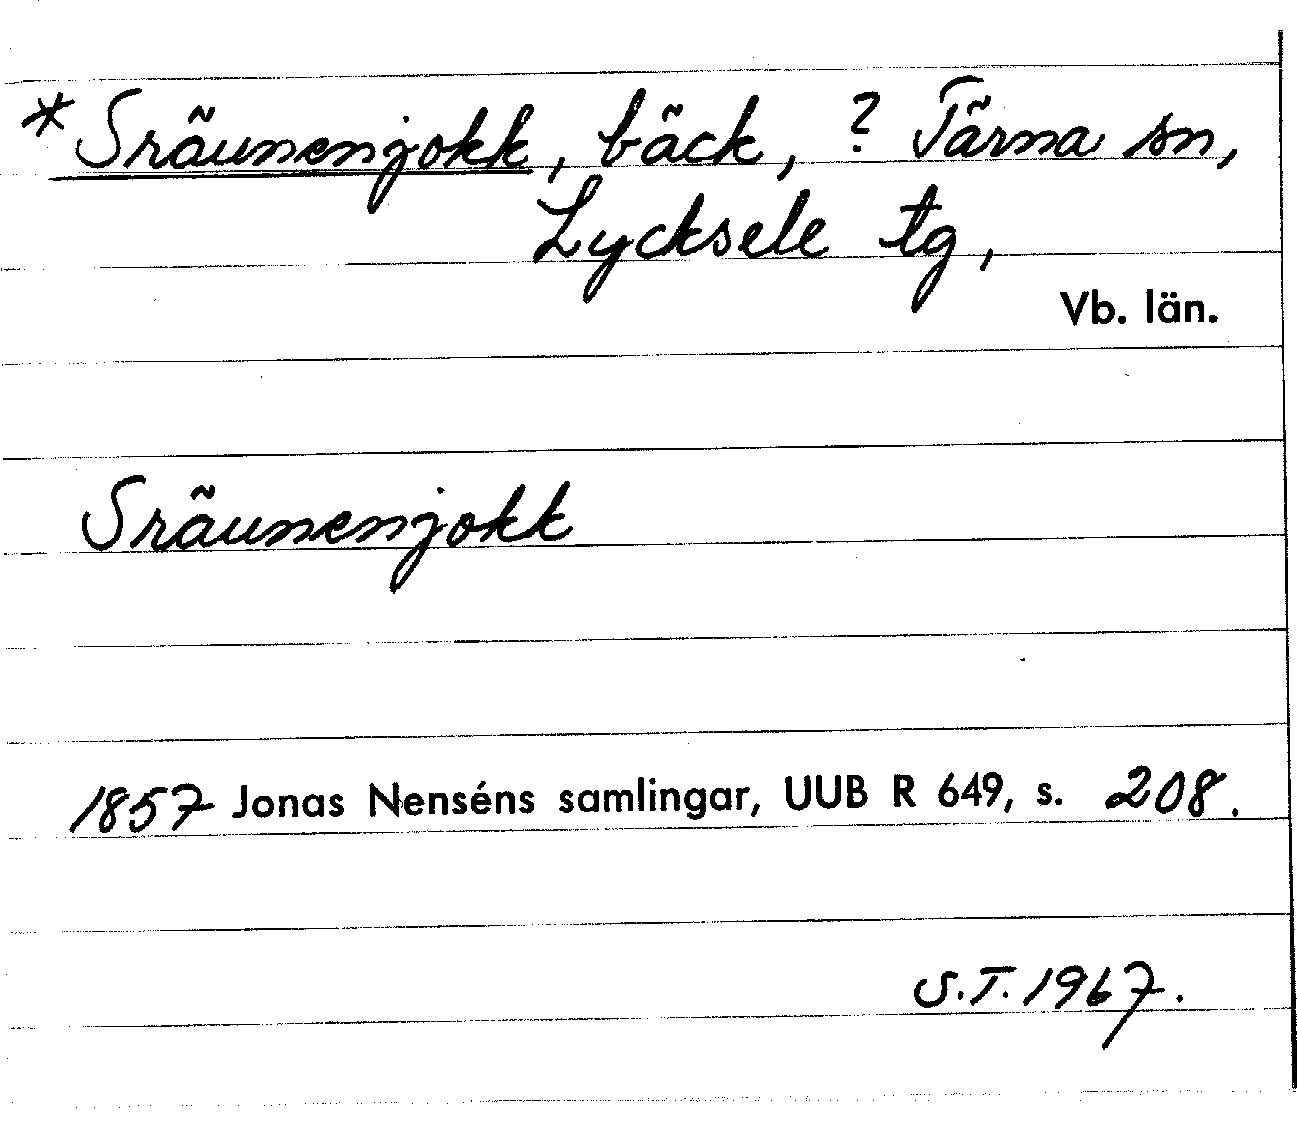 *Sräunenjokk, bäck, ? Tärna sn,
Lycksele tg,
Vb. län.
Sräunenjokk
1857 Jonas Nenséns samlingar, UUB R 649, s. 208.
S.T. 1967.